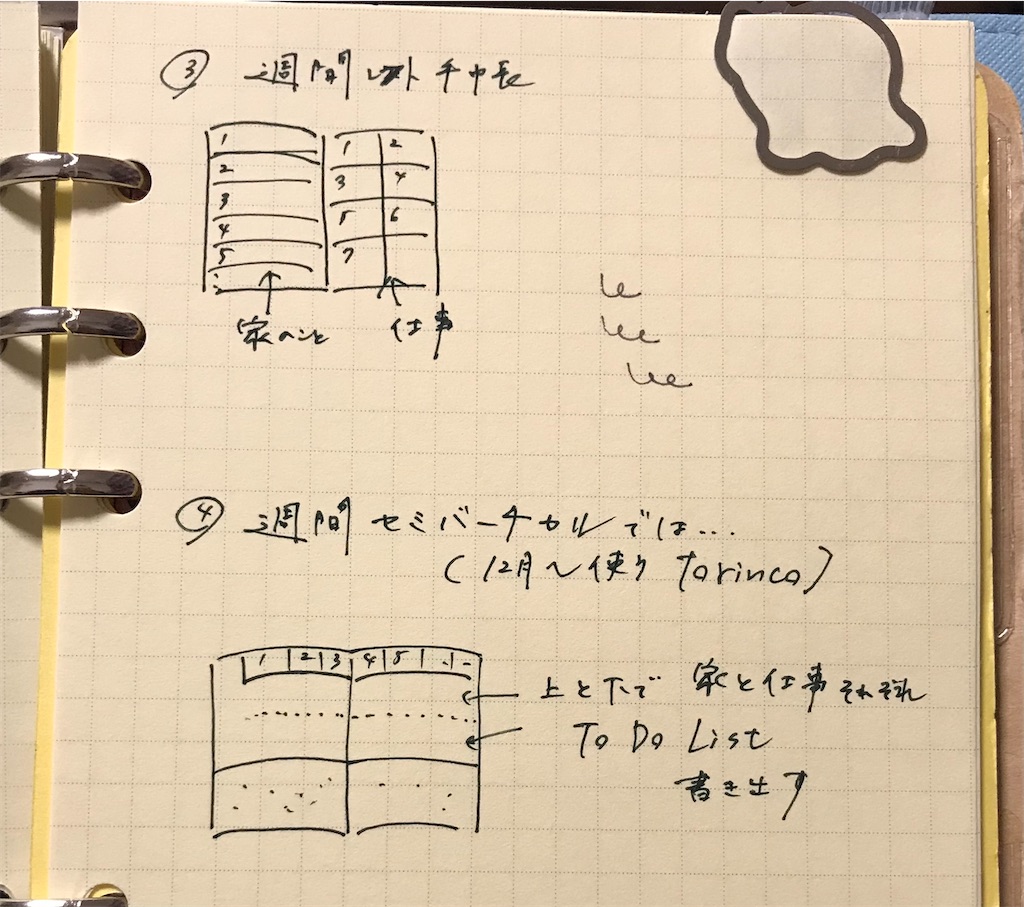 ③ 週間レフト手帳
1 1 2
2 3 4
3 5 6
4 7
5
家のこと 仕事
④ 週間セミバーチカルでは...
(12月〜使う torinco)
1 2 3 4 5
上と下で 家と仕事それぞれ
To Do List
書き出す